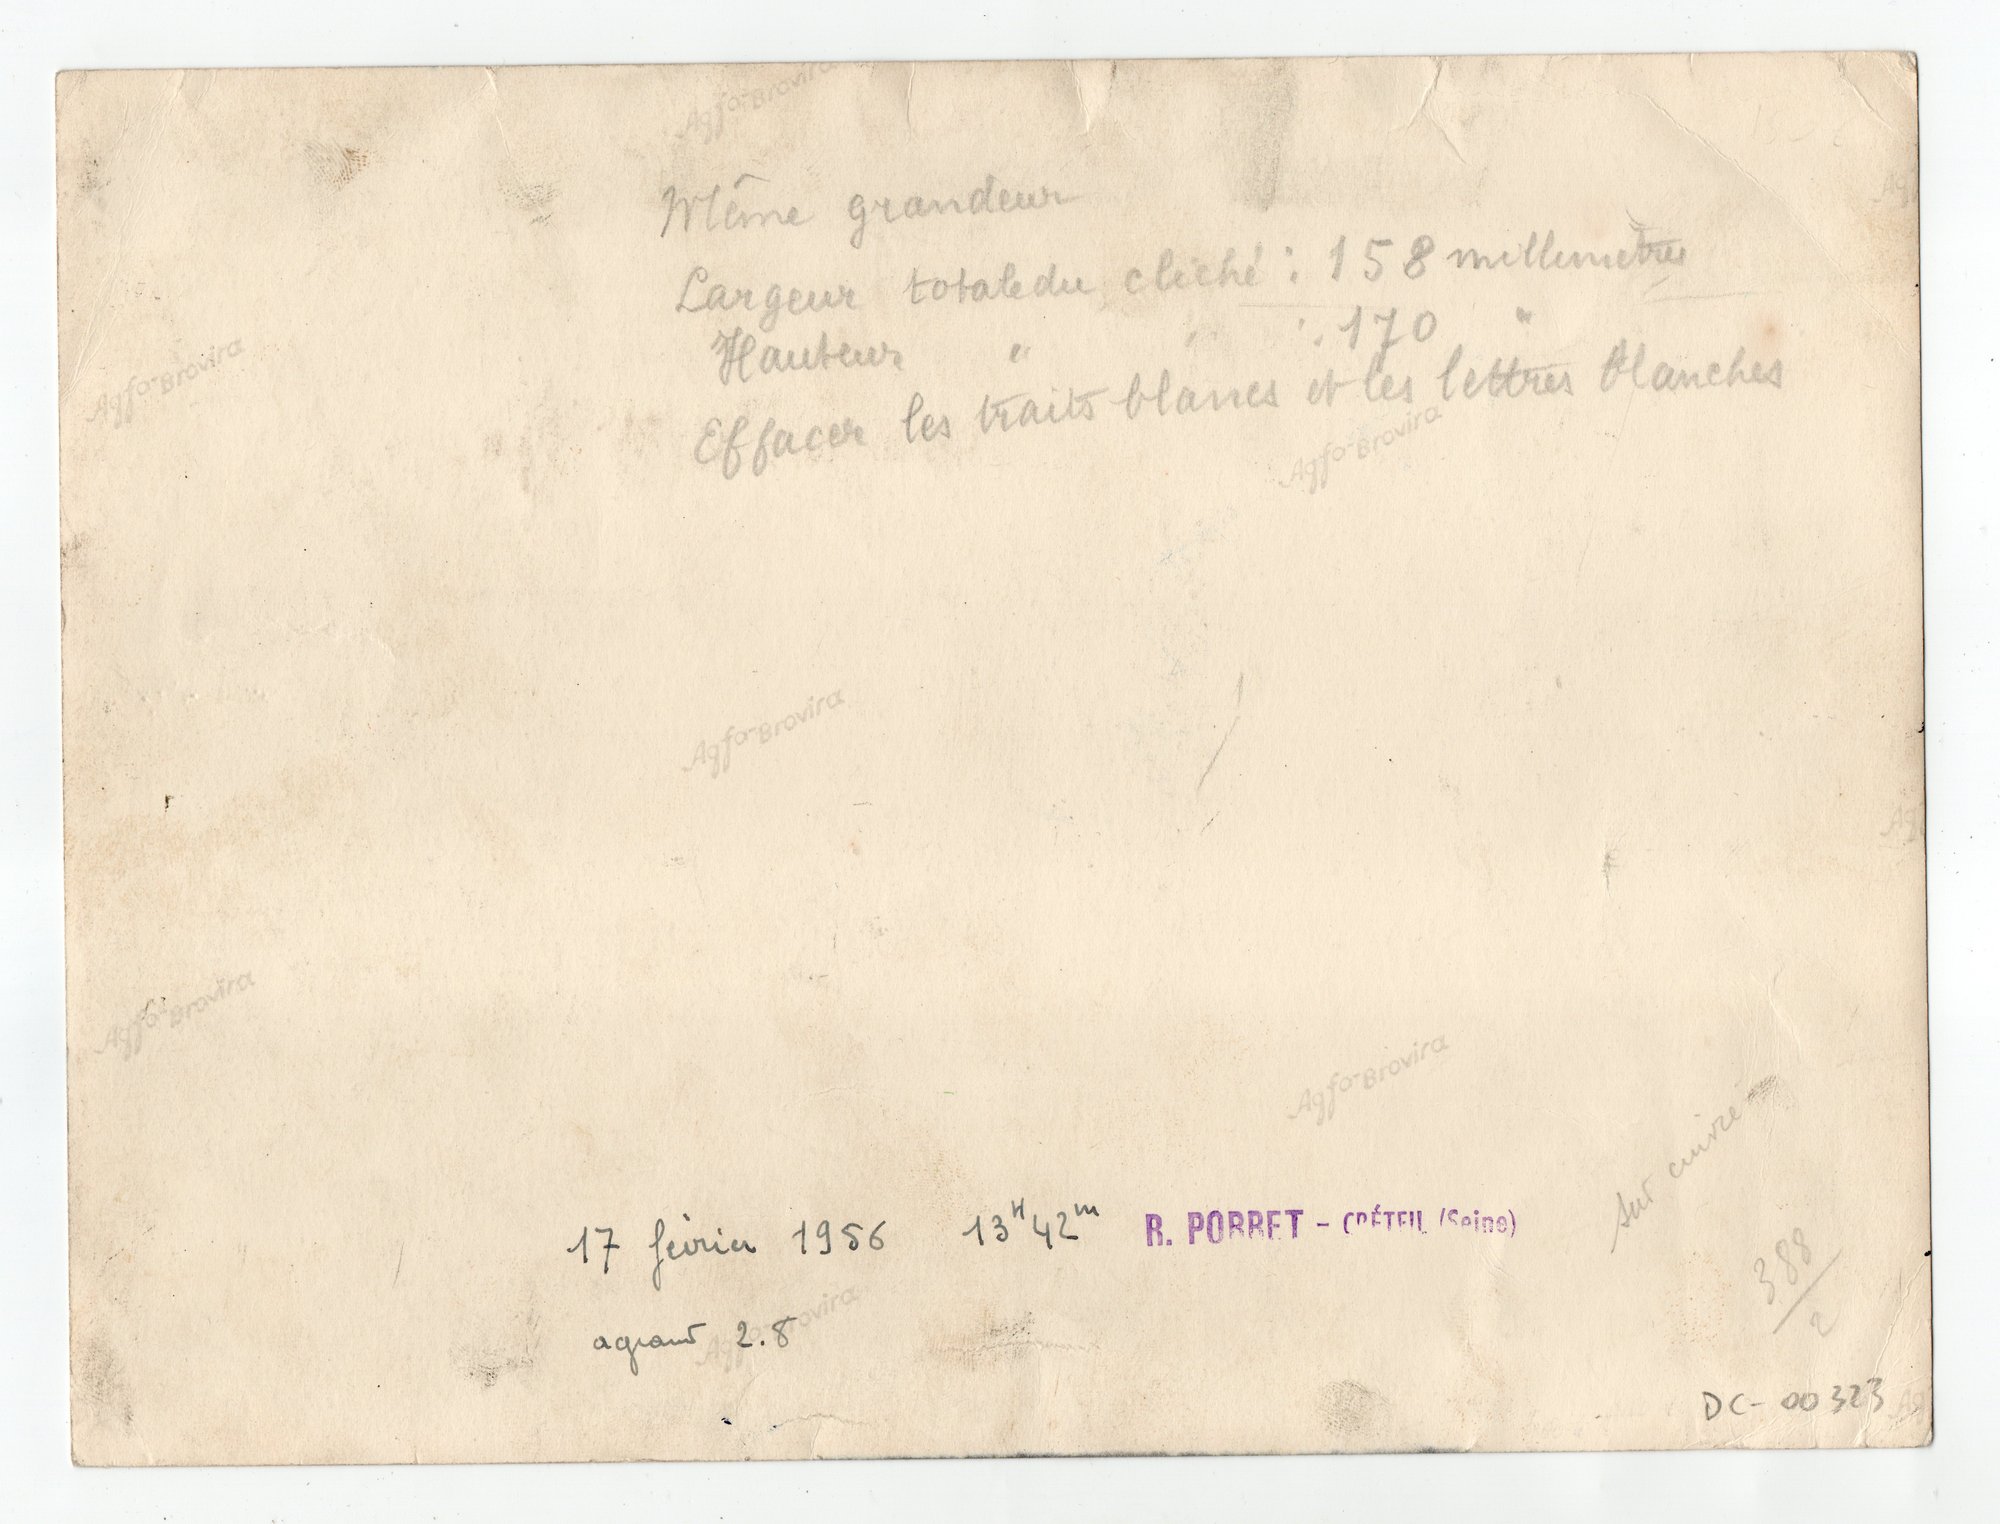 Agfa-Brovira
Même grandeur
Largeur totale du cliché : 158 millimetres
Hauteur " " : 170 "
Effacer les traits blancs et les lettres blanches
Agfa-Brovira
Agfa-Brovira
Agfa-Brovira
Agfa-Brovira
Agfa-Brovira
sur cuivre
17 février 1956 13H42m R. PORRET - CRÉTEIL (Seine)
388/2
Agfa-Brovira
agrand 2.8
DC-00323